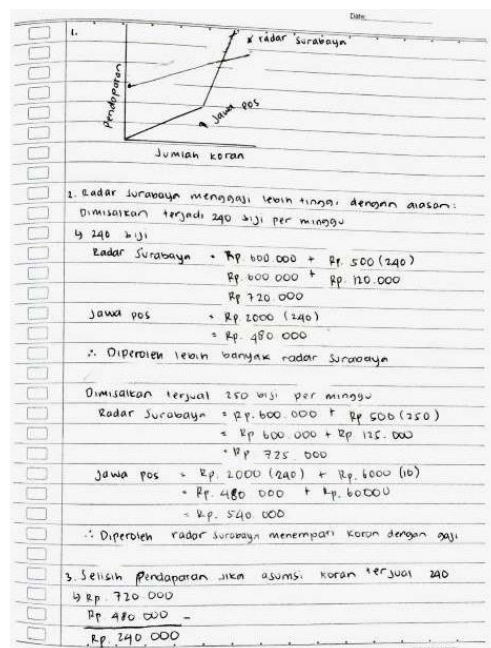 Date:
1.
radar surabaya
Pendapatan
Jawa pos
Jumlah koran
2. Radar Surabaya menggaji lebih tinggi dengan alasan:
Dimisalkan terjadi 240 biji per minggu
↳ 240 biji
Radar Surabaya = Rp. 600.000 + Rp. 500 (240)
Rp. 600 000 + Rp. 120.000
Rp 720 000
Jawa pos = Rp. 2000 (240)
= Rp. 480 000
∴ Diperoleh lebih banyak radar surabaya
Dimisalkan terjual 250 biji per minggu
Radar Surabaya = Rp. 600.000 + Rp 500 (250)
= Rp 600.000 + Rp. 125.000
= Rp 725.000
Jawa pos = Rp. 2000 (240) + Rp. 6000 (10)
= Rp. 480 000 + Rp. 60000
= Rp. 540 000
∴ Diperoleh radar surabaya menempati koran dengan gaji
3. Selisih Pendapatan jika asumsi koran terjual 240
↳ Rp. 720 000
Rp 480 000 -
Rp. 240 000